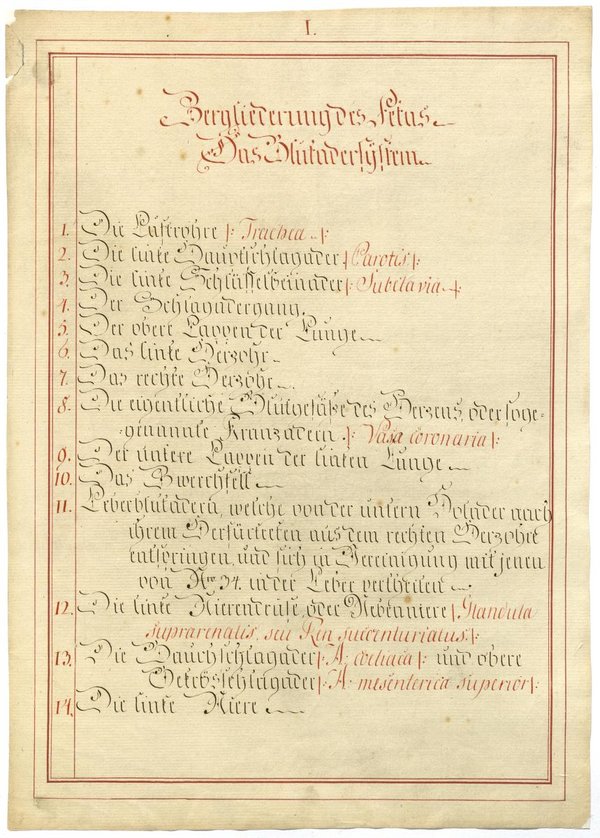 I.
Zergliederung des Fetus
Das Blutadersystem
1. Die Luftröhre /: Trachea :/:
2. Die linke Hauptschlagader /: Carotis :/:
3. Die linke Schlüsselbeinader /: Subclavia :/:
4. Der Schlagadergang.
5. Der obere Lappen der Lunge
6. Das linke Herzohr
7. Das rechte Herzohr
8. Die eigentliche Blutgefäße des Herzens, oder soge-
genannte Kranzadern /: Vasa coronaria :/:
9. Der untere Lappen der linken Lunge
10. Das Zwerchfell
11. Leberblutadern, welche von der untern Holader nach
ihrem aus dem rechten Herzohre
entspringen, und sich in Vereinigung mit jenen
von Nro 34. in der Leber vertheilen
12. Die linke Nierendrüse, oder Nebenniere /: Glandula
suprarenalis, seu Ren succenturiatus :/:
13. Die Bauchschlagader /: A. coeliaca :/: und obere
Gekrösschlagader /: A. mesenterica superior :/:
14. Die linke Niere